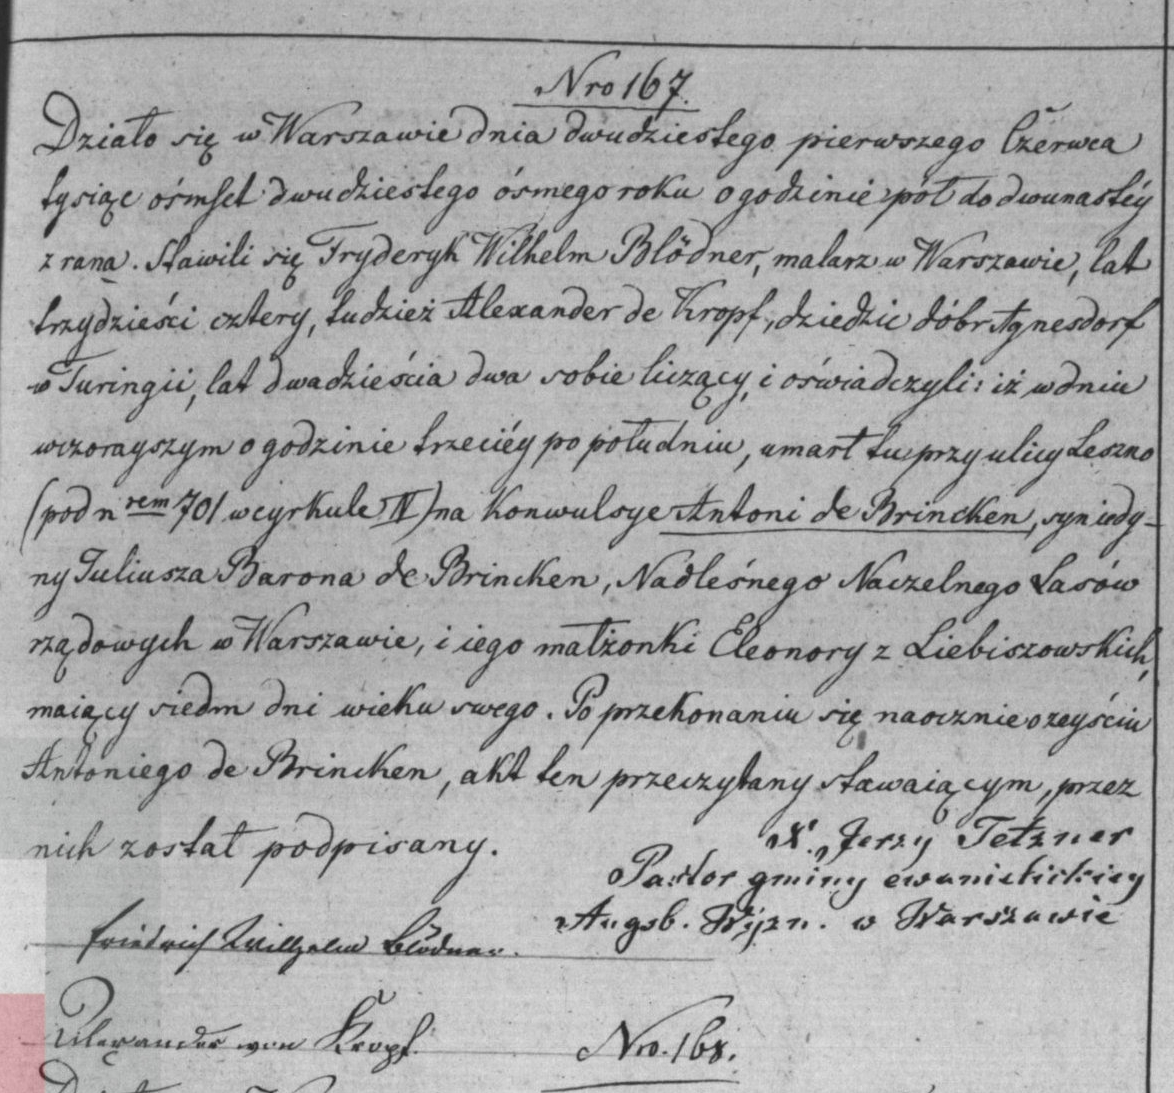 Nro 167.
Działo się w Warszawie dnia dwudziestego pierwszego Czerwca
tysiąc ośmset dwudziestego ósmego roku o godzinie pół do dwunastéy
z rana. Stawili się Fryderyk Wilhelm Blödner, malarz w Warszawie, lat
trzydzieści cztery, tudzież Alexander de Kropf, dziedzic dóbr Agnesdorf
w Turingii, lat dwadzieścia dwa sobie liczący, i oświadczyli: iż w dniu
wczorayszym o godzinie trzeciéy po południu, umarł tu przy ulicy Leszno
(pod nrem 701 w cyrkule IV) na konwulsye Antoni de Brincken, syn iedy-
ny Juliusza Barona de Brincken, Nadleśnego Naczelnego Lasów
rządowych w Warszawie, i iego małżonki Eleonory z Liebiszowskich,
maiący siedm dni wieku swego. Po przekonaniu się naocznie o zeyściu
Antoniego de Brincken, akt ten przeczytany stawaiącym, przez
nich został podpisany.
X. Jerzy Tetzner
Pastor gminy ewanielickiey
Augsb. Wyzn. w Warszawie
Friedrich Wilhelm Blödner.
Alexander von Kropf.
Nro. 168.